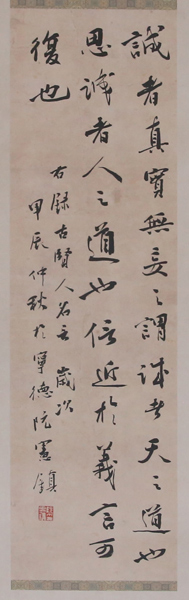 誠者真實無妄之謂誠者天之道也
思誠者人之道也信近於義言可
復也
右録古賢人名言 歲次
甲辰仲秋於寧德阮憲鎮